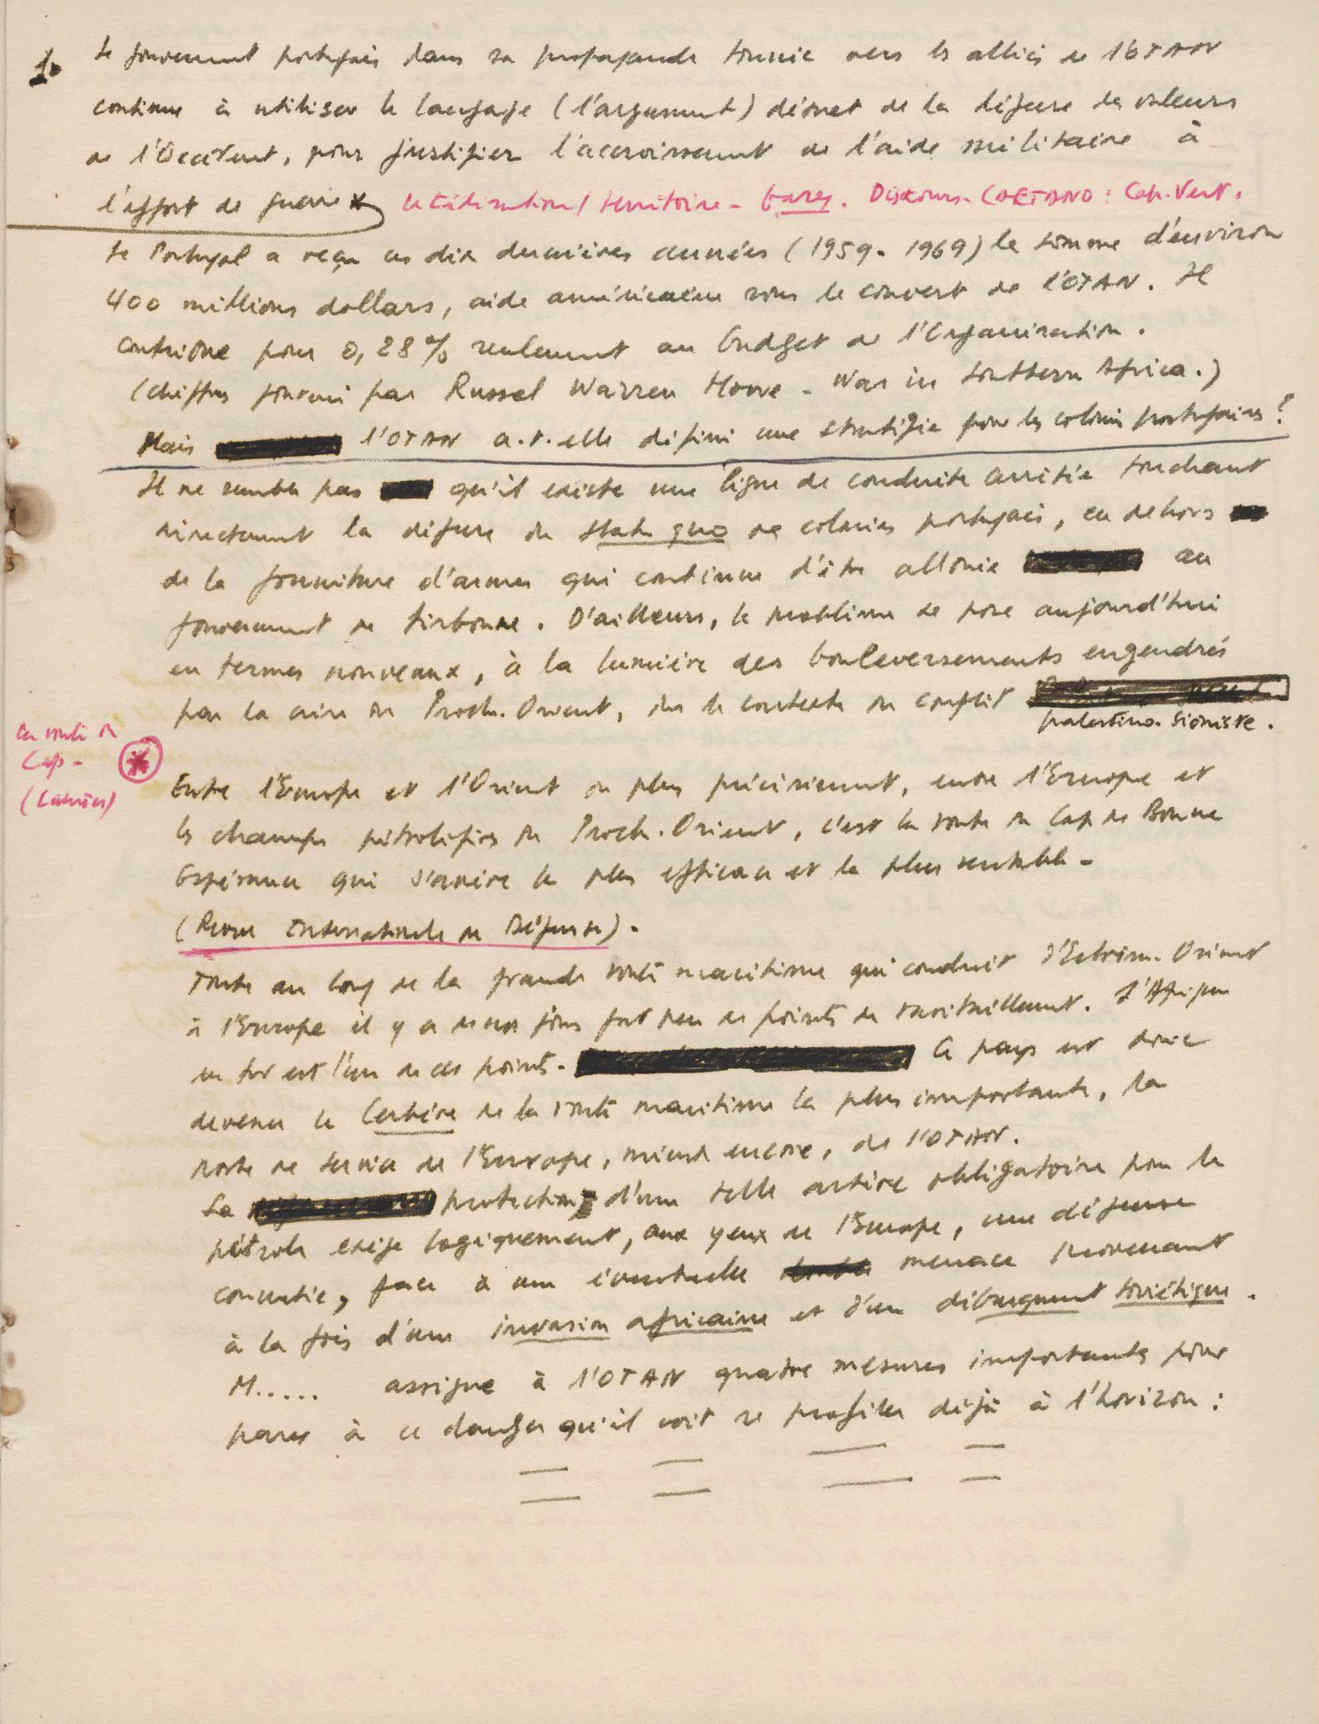 1.
Le gouvernement portugais dans sa propagande tournée vers les alliés de l'OTAN
continue à utiliser le langage (l'argument) désuet de la défense des valeurs
de l'Occident, pour justifier l'accroissement de l'aide militaire à
l'effort de guerre * utilisation / territoire - bases. Discours. CAETANO : Cap. Vert.
Le Portugal a reçu ces dix dernières années (1959-1969) la somme d'environ
400 millions dollars, aide américaine sous le couvert de l'OTAN. Il
contribue pour 0,28% seulement au budget de l'Organisation.
(chiffres fourni par Russel Warren Howe - War in Southern Africa.)
Mais l'OTAN a-t-elle défini une stratégie pour les colonies portugaises ?
Il ne semble pas qu'il existe une ligne de conduite arrêtée touchant
directement la défense du statu quo des colonies portugais, en dehors
de la fourniture d'armes qui continue d'être allouée au
gouvernement de Lisbonne. D'ailleurs, le problème se pose aujourd'hui
en termes nouveaux, à la lumière des bouleversements engendrés
par la crise du Proche-Orient, dans le contexte du conflit
palestino-sioniste.
La route du
Cap -
*
Entre l'Europe et l'Orient ou plus précisément, entre l'Europe et
les champs pétrolifères du Proche-Orient, c'est la route du Cap de Bonne
Espérance qui s'avère la plus efficace et la plus rentable -
(Revue Internationale de Défense).
Toute au long de la grande route maritime qui conduit d'Extrême-Orient
à l'Europe il y a de nos jours fort peu de points de ravitaillement. L'Afrique
du Sud est l'un de ces points. Ce pays est donc
devenu le Cerbère de la route maritime la plus importante, la
porte de service de l'Europe, mieux encore, de l'OTAN.
La protection d'une telle artère obligatoire pour le
pétrole exige logiquement, aux yeux de l'Europe, une défense
concertée, face à une éventuelle menace provenant
à la fois d'une invasion africaine et d'un débarquement soviétique.
M..... assigne à l'OTAN quatre mesures importantes pour
parer à ce danger qu'il voit se profiler déjà à l'horizon :